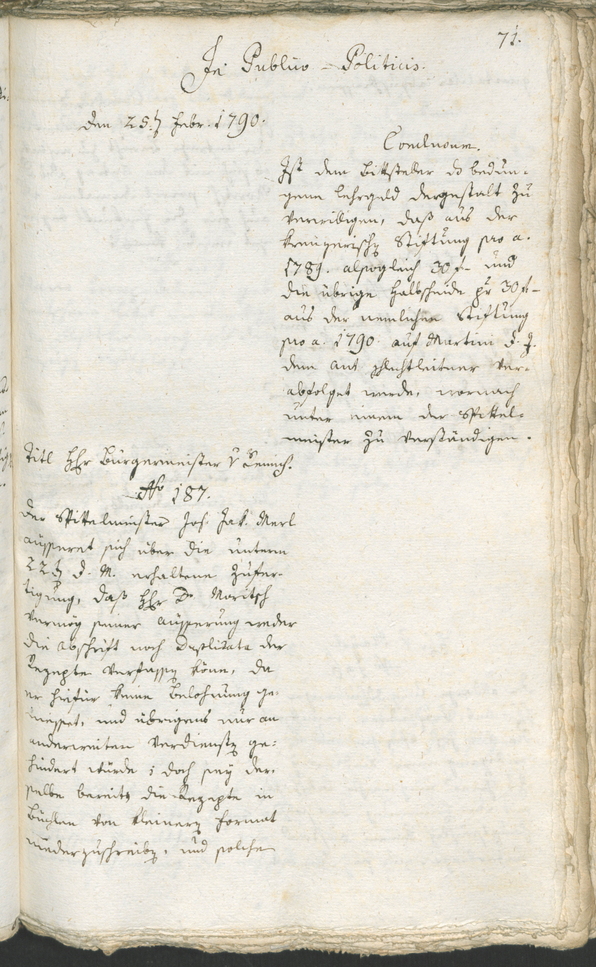 71.
In Publico-Politicis.
den 25.t Febr. 1790.
Conclusum.
Ist dem Bittsteller das bedun-
gene Lehrgeld dergestalt zu
verwilligen, daß aus der
Kreuzerisch Stiftung pro a.
1789. alsogleich 30 f. und
die übrige Halbscheide pr 30 f.
aus der nemlichen Stiftung
pro a. 1790. auf Martini d. J.
dem Ant. Schlechtleitner ver-
abfolget werde, wornach
unter einem der Spitel-
meister zu verständigen.
Titl Hr Bürgermeister v
No 187.
Der Spitelmeister Joh. Jak. Merl
äusseret sich über die unterm
22t d. M. erhaltene Zufer-
tigung, daß Hr Dr Moritsch
vermög seiner Äusserung weder
die Abschrift noch Duplikate der
Rezepte verfassen könne, da
er hiefür keine Belohnung ge-
niesset, und übrigens nur an
anderweiten Verdiensten ge-
hindert würde; doch sey der-
selbe bereits die Rezepte in
Büchlen von kleinern Format
niederzuschreiben, und solche